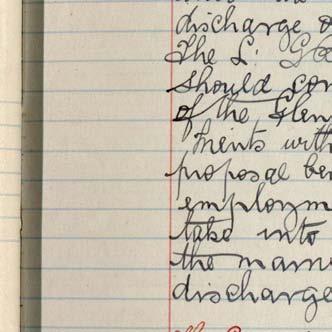 discharge o
The L. Gle
should con
of the Glen
ments with
proposal be
employm
take into
the mann
discharge